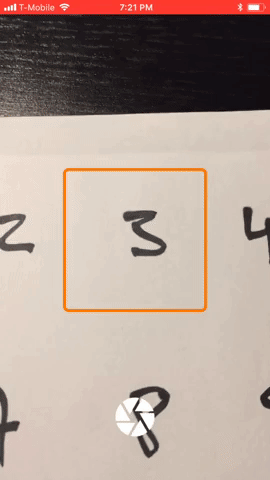 T-Mobile 7:21 PM
2 3 4
7 8